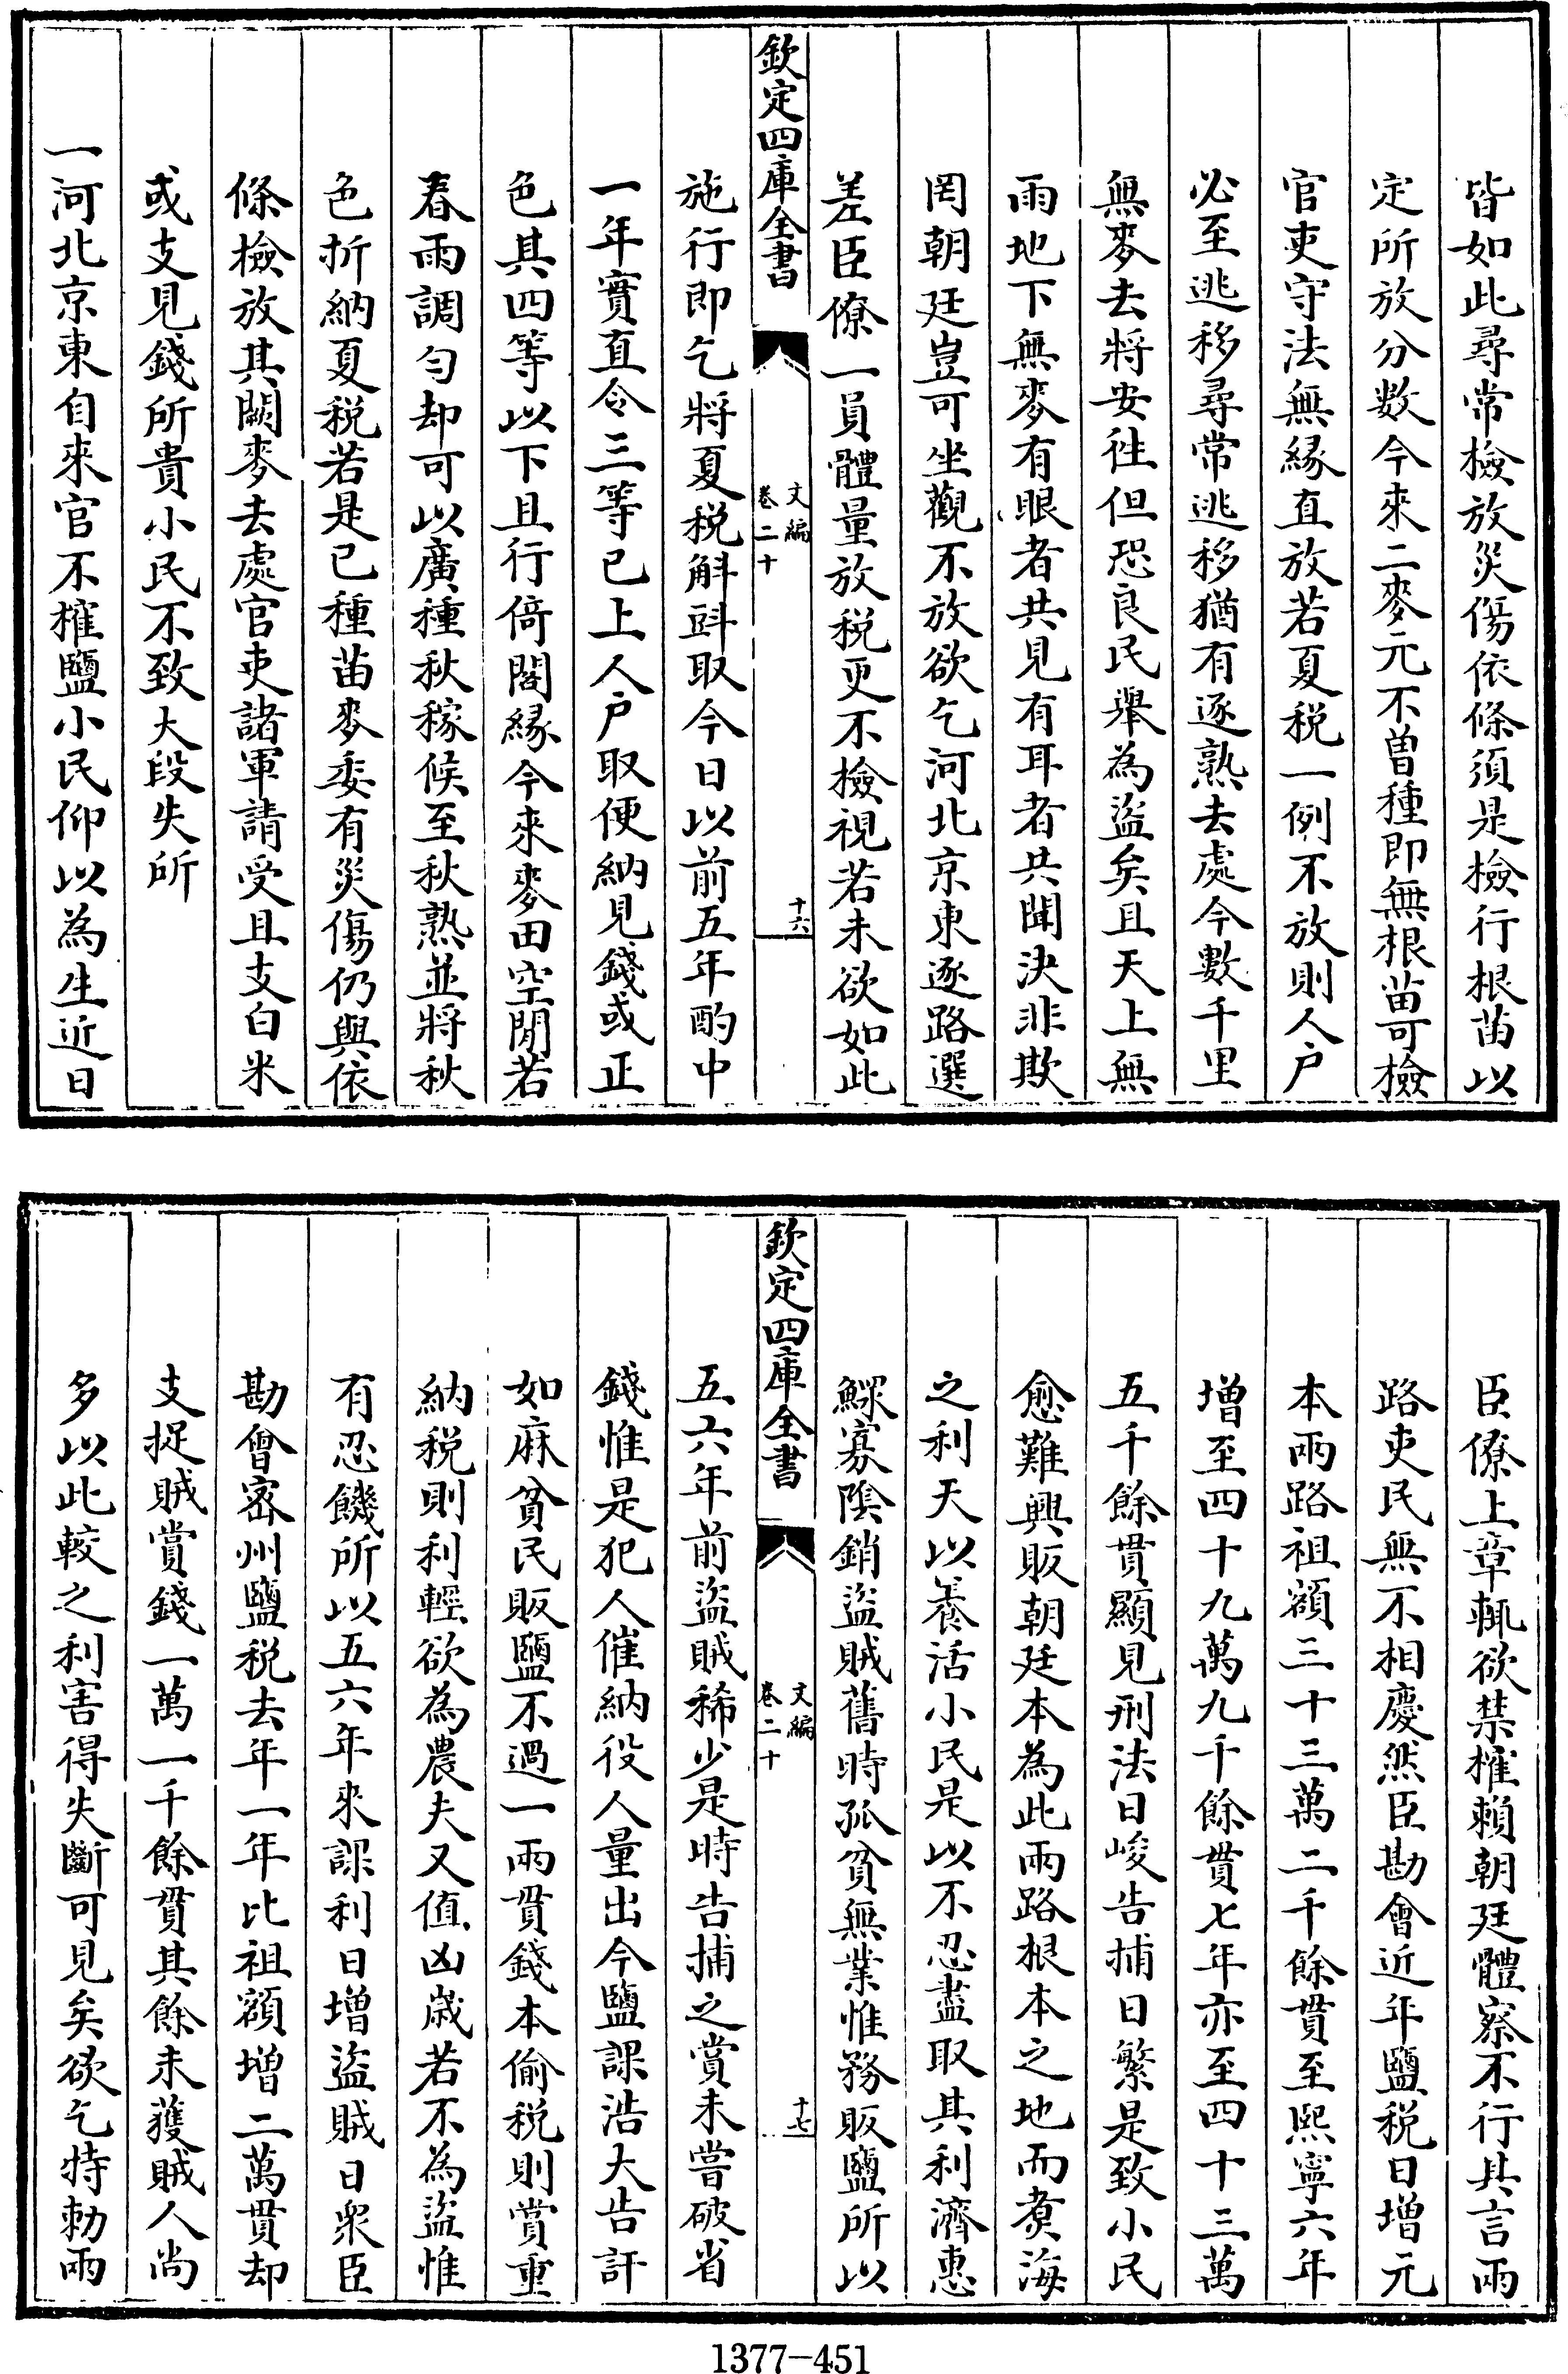 皆如此尋常檢放災傷依條須是檢行根苗以
定所放分數今來二麥元不曽種即無根苗可檢
官吏守法無縁直放若夏税一例不放則人户
必至逃移尋常逃移猶有逐熟去處今數千里
無麥去將安徃但恐良民舉為盜矣且天上無
雨地下無麥有眼者共見有耳者共聞決非欺
罔朝廷豈可坐觀不放欲乞河北京東逐路選
差臣僚一員體量放税更不檢視若未欲如此
欽定四庫全書
文編
卷二十
十六
施行即乞將夏税斛㪷取今日以前五年酌中
一年實直令三等已上人户取便納見錢或正
色其四等以下且行倚閣縁今來麥田空閒若
春雨調匀却可以廣種秋稼候至秋熟並將秋
色折納夏税若是已種苗麥委有災傷仍與依
條檢放其闕麥去處官吏諸軍請受且支白米
或支見錢所貴小民不致大段失所
一河北京東自來官不榷鹽小民仰以為生近日
臣僚上章輒欲禁榷賴朝廷體察不行其言兩
路吏民無不相慶然臣勘會近年鹽税日增元
本兩路祖額三十三萬二千餘貫至熙寧六年
增至四十九萬九千餘貫七年亦至四十三萬
五千餘貫顯見刑法日峻告捕日繁是致小民
愈難興販朝廷本為此兩路根本之地而煑海
之利天以養活小民是以不忍盡取其利濟惠
鰥寡陰銷盜賊舊時孤貧無業惟務販鹽所以
欽定四庫全書
文編
卷二十
十七
五六年前盜賊稀少是時告捕之賞未嘗破省
錢惟是犯人催納役人量出今鹽課浩大告訐
如麻貧民販鹽不過一兩貫錢本偷税則賞重
納税則利輕欲為農夫又值凶歳若不為盜惟
有忍饑所以五六年來課利日增盜賊日衆臣
勘會宻州鹽税去年一年比祖額增二萬貫却
支捉賊賞錢一萬一千餘貫其餘未獲賊人尚
多以此較之利害得失斷可見矣欲乞特勅兩
1377-451